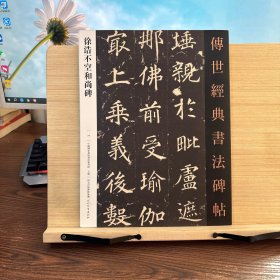 傳世經典書法碑帖
徐浩不空和尚碑
埵親於毗盧遮
那佛前受瑜伽
最上乘義後數